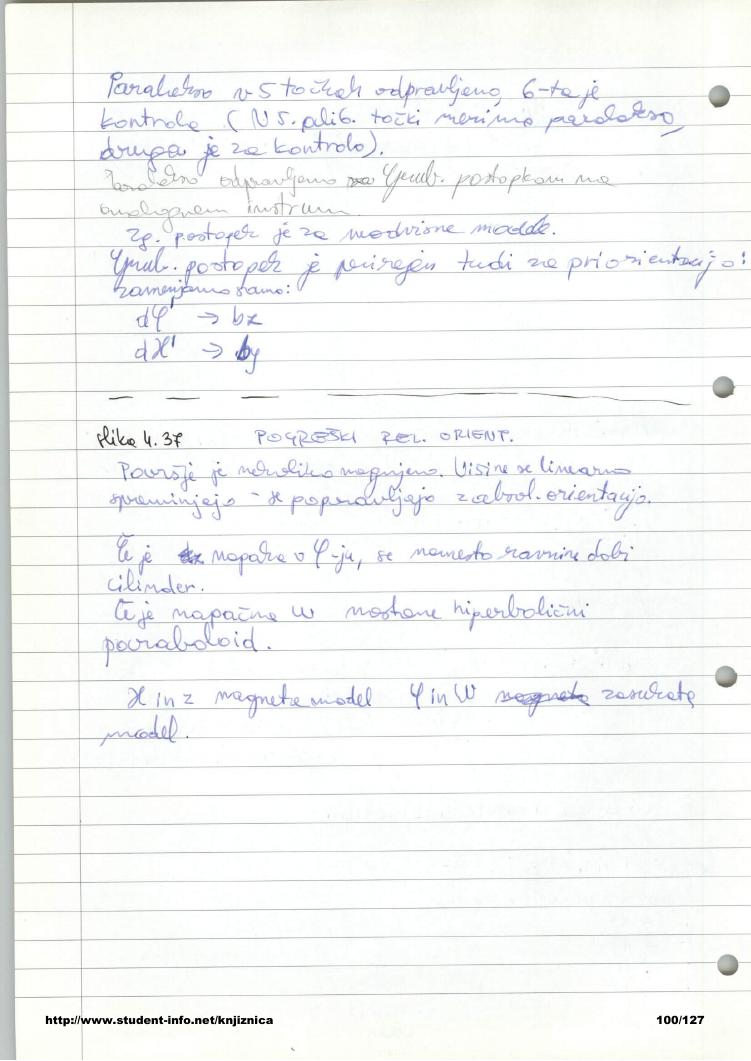 Paralakso v 5 točkah odpravljeno, 6-ta je
kontrola (V 5. ali 6. točki merimo paralakso,
druga je za kontrolo).
Paralakso odpravljamo Grub. postopkom na
analognem instrum.
Zg. postopek je za neodvisne modele.
Grub. postopek je prirejen tudi za priorientacijo:
zamenjamo samo:
dφ' → bz
dϰ' → by
slika 4.37 POGREŠKI REL. ORIENT.
Površje je nekoliko nagnjeno. Višine se linearno
spreminjajo - se popravljajo z absol. orientacijo.
Če je napaka v φ-ju, se namesto ravnine dobi
cilinder.
Če je napačna ω nastane hiperbolični
paraboloid.
ϰ in z nagneta model φ in ω zasukata
model.
http://www.student-info.net/knjiznica 100/127